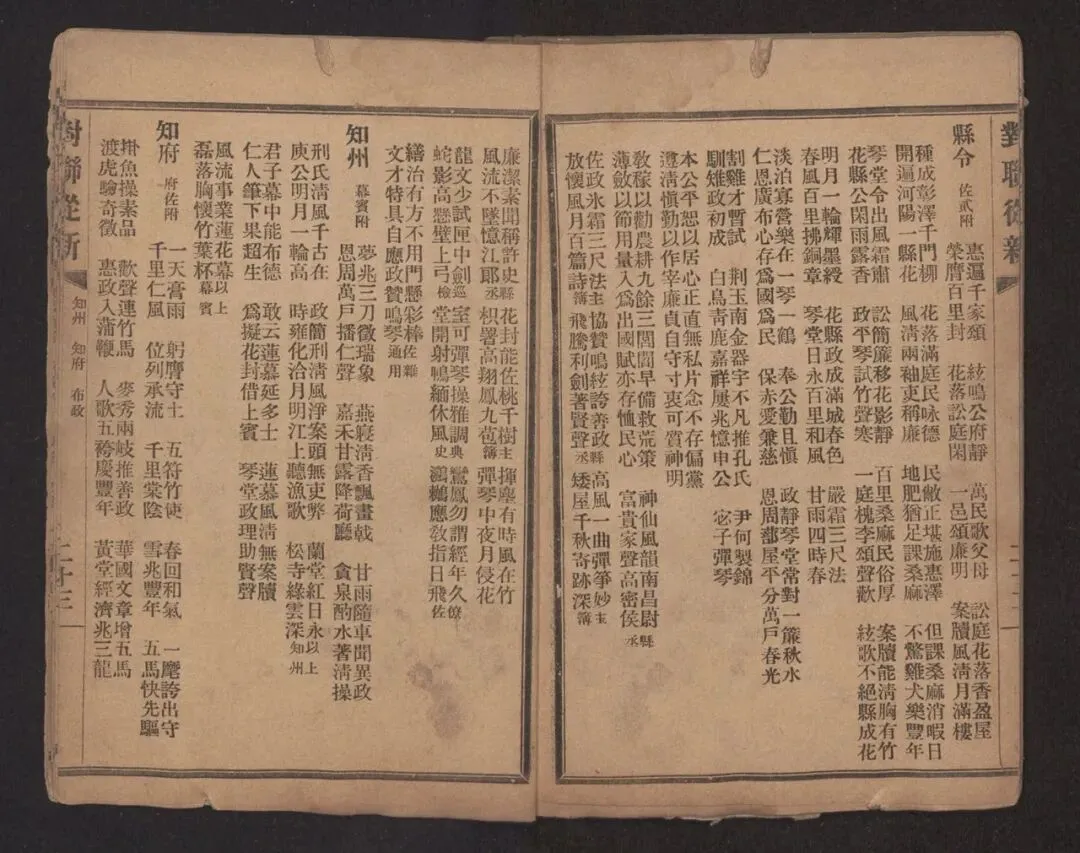 對聯從新
縣令 佐貳附
惠遍千家頌 絃鳴公府靜 萬民歌父母 訟庭花落香盈屋
榮膺百里封 花落訟庭閑 一邑頌廉明 案牘風清月滿樓
種成彭澤千門柳 花落滿庭民咏德 民敝正堪施惠澤 但課桑麻消暇日
開遍河陽一縣花 風清兩袖吏稱廉 地肥猶足課桑麻 不驚雞犬樂豐年
琴堂令出風霜肅 訟簡簾移花影靜 百里桑麻民俗厚 案牘能清胸有竹
花縣公閑雨露香 政平琴試竹聲寒 一庭槐李頌聲歡 絃歌不絕縣成花
明月一輪輝墨綬 花縣政成滿城春色 嚴霜三尺法
春風百里拂銅章 琴堂日永百里和風 甘雨四時春
淡泊寡營樂在一琴一鶴 奉公勤且愼 政靜琴堂常對一簾秋水
仁恩廣布心存爲國爲民 保赤愛兼慈 恩周蔀屋平分萬戶春光
割雞才暫試 荆玉南金器宇不凡推孔氏 尹何製錦
馴雉政初成 白烏青鹿嘉祥屢兆憶申公 宓子彈琴
本公平恕以居心正直無私片念不存偏黨
遵清愼勤以作宰廉貞自守寸衷可質神明
敎稼以勸農耕九餘三閭閻早備救荒策 神仙風韻南昌尉縣
薄斂以節用量入爲出國賦亦存恤民心 富貴家聲高密侯丞
佐政氷霜三尺法主 協贊鳴絃誇善政縣 高風一曲彈箏妙主
放懷風月百篇詩簿 飛騰利劍著賢聲丞 矮屋千秋奇跡深簿
廉潔素聞稱許史縣 花封能佐桃千樹主 揮塵有時風在竹
風流不墜憶江郎丞 枳署高翔鳳九苞簿 彈琴中夜月侵花
龍文少試匣中劍巡 室可彈琴操雅調典 鸞鳳勿謂經年久僚
蛇影高懸壁上弓檢 堂開射鴨緬休風史 鴻鵠應敎指日飛佐
繕治有方不用門懸彩棒佐雜
文才特具自應政贊鳴琴通用
知州 幕賓附
夢兆三刀徵瑞象 燕寢清香飄畫戟 甘雨隨車聞異政
恩周萬戶播仁聲 嘉禾甘露降荷廳 貪泉酌水著清操
刑氏清風千古在 政簡刑清風淨案頭無吏弊 蘭堂紅日永以上
庾公明月一輪高 時雍化洽月明江上聽漁歌 松寺綠雲深知州
君子幕中能布德 敢云蓮慕延多士 蓮慕風清無案牘
仁人筆下果超生 爲擬花封借上賓 琴堂政理助賢聲
風流事業蓮花幕以上
磊落胸懷竹葉杯幕賓
知府 府佐附
一天膏雨 躬膺守土 五符竹使 春回和氣 一麾誇出守
千里仁風 位列承流 千里棠陰 雪兆豐年 五馬快先驅
掛魚操素品 歡聲連竹馬 麥秀兩岐推善政 華國文章增五馬
渡虎驗奇徵 惠政入蒲鞭 人歌五袴慶豐年 黃堂經濟兆三龍
對聯從新 知州 知府 布政 二十三